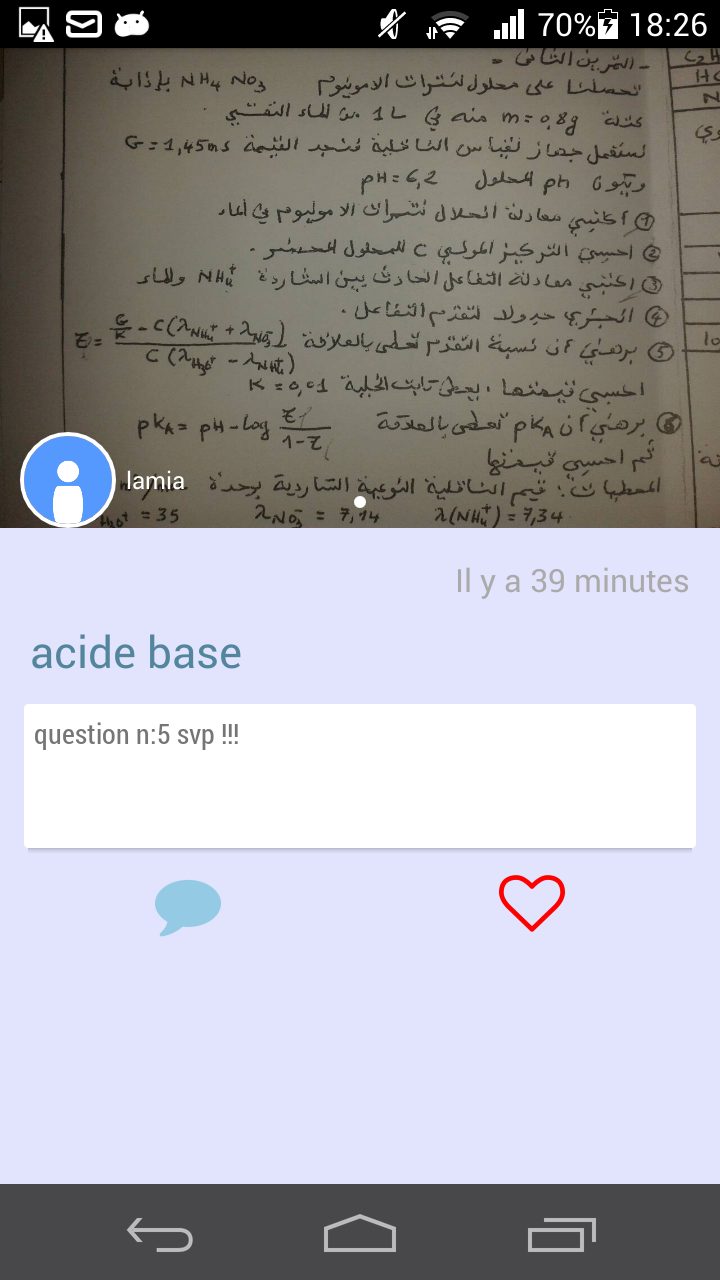 70% 18:26
- التمرين الثاني =
تحصلنا على محلول نترات الامونيوم NH4 NO3 بإذابة
كتلة m = 0,8g منه في 1L من الماء النقي
نستعمل جهاز لقياس الناقلية فنجد القيمة G = 1,45ms
ويكون pH المحلول pH = 6,2
① أكتبي معادلة انحلال نترات الامونيوم في الماء
② احسبي التركيز المولي C للمحلول المحضر .
③ اكتبي معادلة التفاعل الحادث بين الشاردة NH4+ والماء
④ انجزي جدولا لتقدم التفاعل .
⑤ برهني أن نسبة التقدم تعطى بالعلاقة τ = (G/K - C(λNH4+ + λNO3-)) / (C(λH3O+ - λNH4+))
احسبي قيمتها ، يعطى ثابت الخلية K = 0,01
⑥ برهني أن pKA تعطى بالعلاقة pKA = pH - log τ/(1-τ)
ثم احسبي قيمتها
المعطيات : قيم الناقلية النوعية الشاردية بوحدة
H3O+ = 35 λNO3- = 7,14 λ(NH4+) = 7,34
C2H
HC
N
10
lamia
Il y a 39 minutes
acide base
question n:5 svp !!!